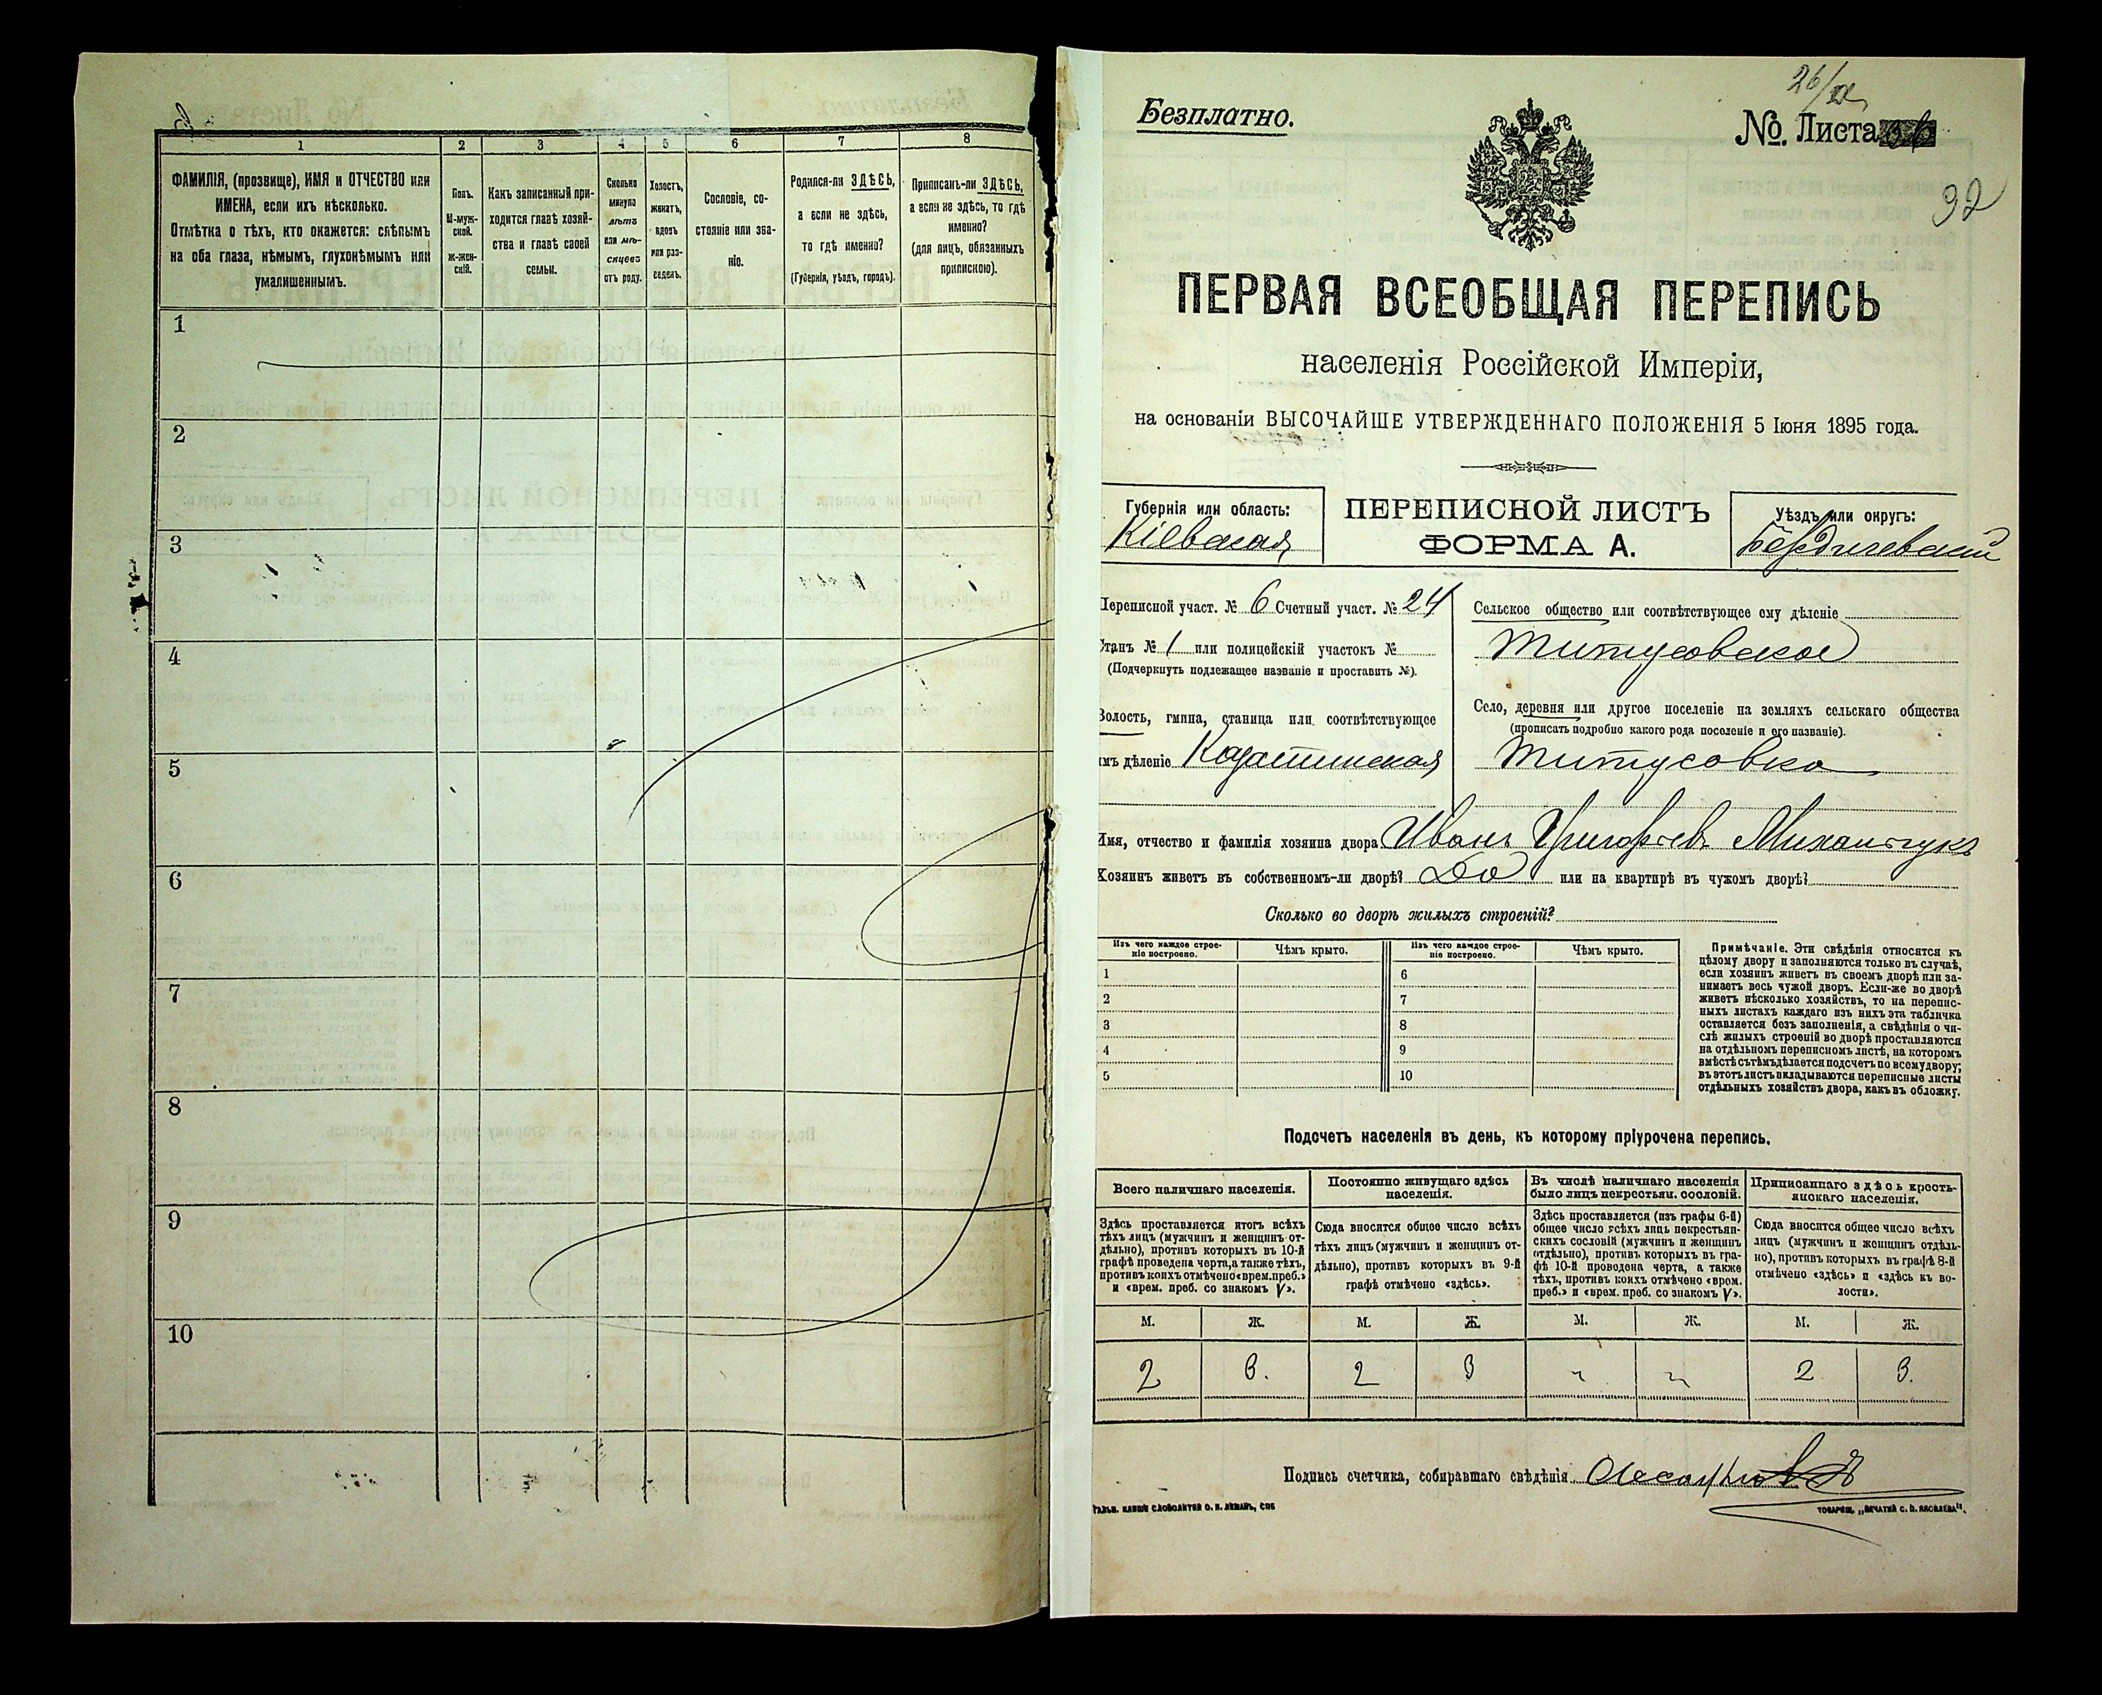 1 2 3 4 5 6 7 8
ФАМИЛІЯ, (прозвище), ИМЯ и ОТЧЕСТВО или
ИМЕНА, если ихъ нѣсколько.
Отмѣтка о тѣхъ, кто окажется: слѣпымъ
на оба глаза, нѣмымъ, глухонѣмымъ или
умалишеннымъ.
Полъ.
М-муж-
ской.
Ж-жен-
скій.
Какъ записанный при-
ходится главѣ хозяй-
ства и главѣ своей
семьи.
Сколько
минуло
лѣтъ
или мѣ-
сяцевъ
отъ роду.
Холостъ,
женатъ,
вдовъ
или раз-
веденъ.
Сословіе, со-
стояніе или зва-
ніе.
Родился-ли ЗДѢСЬ,
а если не здѣсь,
то гдѣ именно?
(Губернія, уѣздъ, городъ).
Приписанъ-ли ЗДѢСЬ,
а если не здѣсь, то гдѣ
именно?
(для лицъ, обязанныхъ
припискою).
1
2
3
4
5
6
7
8
9
10
Безплатно.
№. Листа
92
ПЕРВАЯ ВСЕОБЩАЯ ПЕРЕПИСЬ
населенія Россійской Имперіи,
на основаніи ВЫСОЧАЙШЕ УТВЕРЖДЕННАГО ПОЛОЖЕНІЯ 5 Іюня 1895 года.
Губернія или область:
Кіевская
ПЕРЕПИСНОЙ ЛИСТЪ
ФОРМА А.
Уѣздъ или округъ:
Бердичевскій
Переписной участ. № 6 Счетный участ. № 24
Станъ № 1 или полицейскій участокъ №
(Подчеркнуть подлежащее названіе и проставить №).
Волость, гмина, станица или соотвѣтствующее
имъ дѣленіе Казатинская
Сельское общество или соотвѣтствующее ему дѣленіе
Титусовское
Село, деревня или другое поселеніе на земляхъ сельскаго общества
(прописать подробно какого рода поселеніе и его названіе).
Титусовка
Имя, отчество и фамилія хозяина двора Иванъ Григорьевъ Михальчукъ
Хозяинъ живетъ въ собственномъ-ли дворѣ? Да или на квартирѣ въ чужомъ дворѣ?
Сколько во дворѣ жилыхъ строеній?
Изъ чего каждое строе-
ніе построено.
Чѣмъ крыто.
Изъ чего каждое строе-
ніе построено.
Чѣмъ крыто.
1 6
2 7
3 8
4 9
5 10
Примѣчаніе. Эти свѣдѣнія относятся къ
цѣлому двору и заполняются только въ случаѣ,
если хозяинъ живетъ въ своемъ дворѣ или за-
нимаетъ весь чужой дворъ. Если-же во дворѣ
живетъ нѣсколько хозяйствъ, то на перепис-
ныхъ листахъ каждаго изъ нихъ эта табличка
оставляется безъ заполненія, а свѣдѣнія о чи-
слѣ жилыхъ строеній во дворѣ проставляются
на отдѣльномъ переписномъ листѣ, на которомъ
вмѣстѣ съ тѣмъ дѣлается подсчетъ по всему двору;
въ этотъ листъ вкладываются переписные листы
отдѣльныхъ хозяйствъ двора, какъ въ обложку.
Подсчетъ населенія въ день, къ которому пріурочена перепись.
Всего наличнаго населенія.
Постоянно живущаго здѣсь
населенія.
Въ числѣ наличнаго населенія
было лицъ некрестьян. сословій.
Приписаннаго здѣсь кресть-
янскаго населенія.
Здѣсь проставляется итогъ всѣхъ
тѣхъ лицъ (мужчинъ и женщинъ от-
дѣльно), противъ которыхъ въ 10-й
графѣ проведена черта, а также тѣхъ,
противъ коихъ отмѣчено «врем. преб.»
и «врем. преб. со знакомъ V».
Сюда вносится общее число всѣхъ
тѣхъ лицъ (мужчинъ и женщинъ от-
дѣльно), противъ которыхъ въ 9-й
графѣ отмѣчено «здѣсь».
Здѣсь проставляется (изъ графы 6-й)
общее число всѣхъ лицъ некрестьян-
скихъ сословій (мужчинъ и женщинъ
отдѣльно), противъ которыхъ въ гра-
фѣ 10-й проведена черта, а также
тѣхъ, противъ коихъ отмѣчено «врем.
преб.» и «врем. преб. со знакомъ V».
Сюда вносится общее число всѣхъ
лицъ (мужчинъ и женщинъ отдѣль-
но), противъ которыхъ въ графѣ 8-й
отмѣчено «здѣсь» и «здѣсь къ во-
лости».
М. Ж. М. Ж. М. Ж. М. Ж.
2 3. 2 3 " " 2 3.
Подпись счетчика, собиравшаго свѣдѣнія
Гальв. клише словолитни О. И. Леманъ, СПБ
Товарищ. „Печатня С. П. Яковлева".